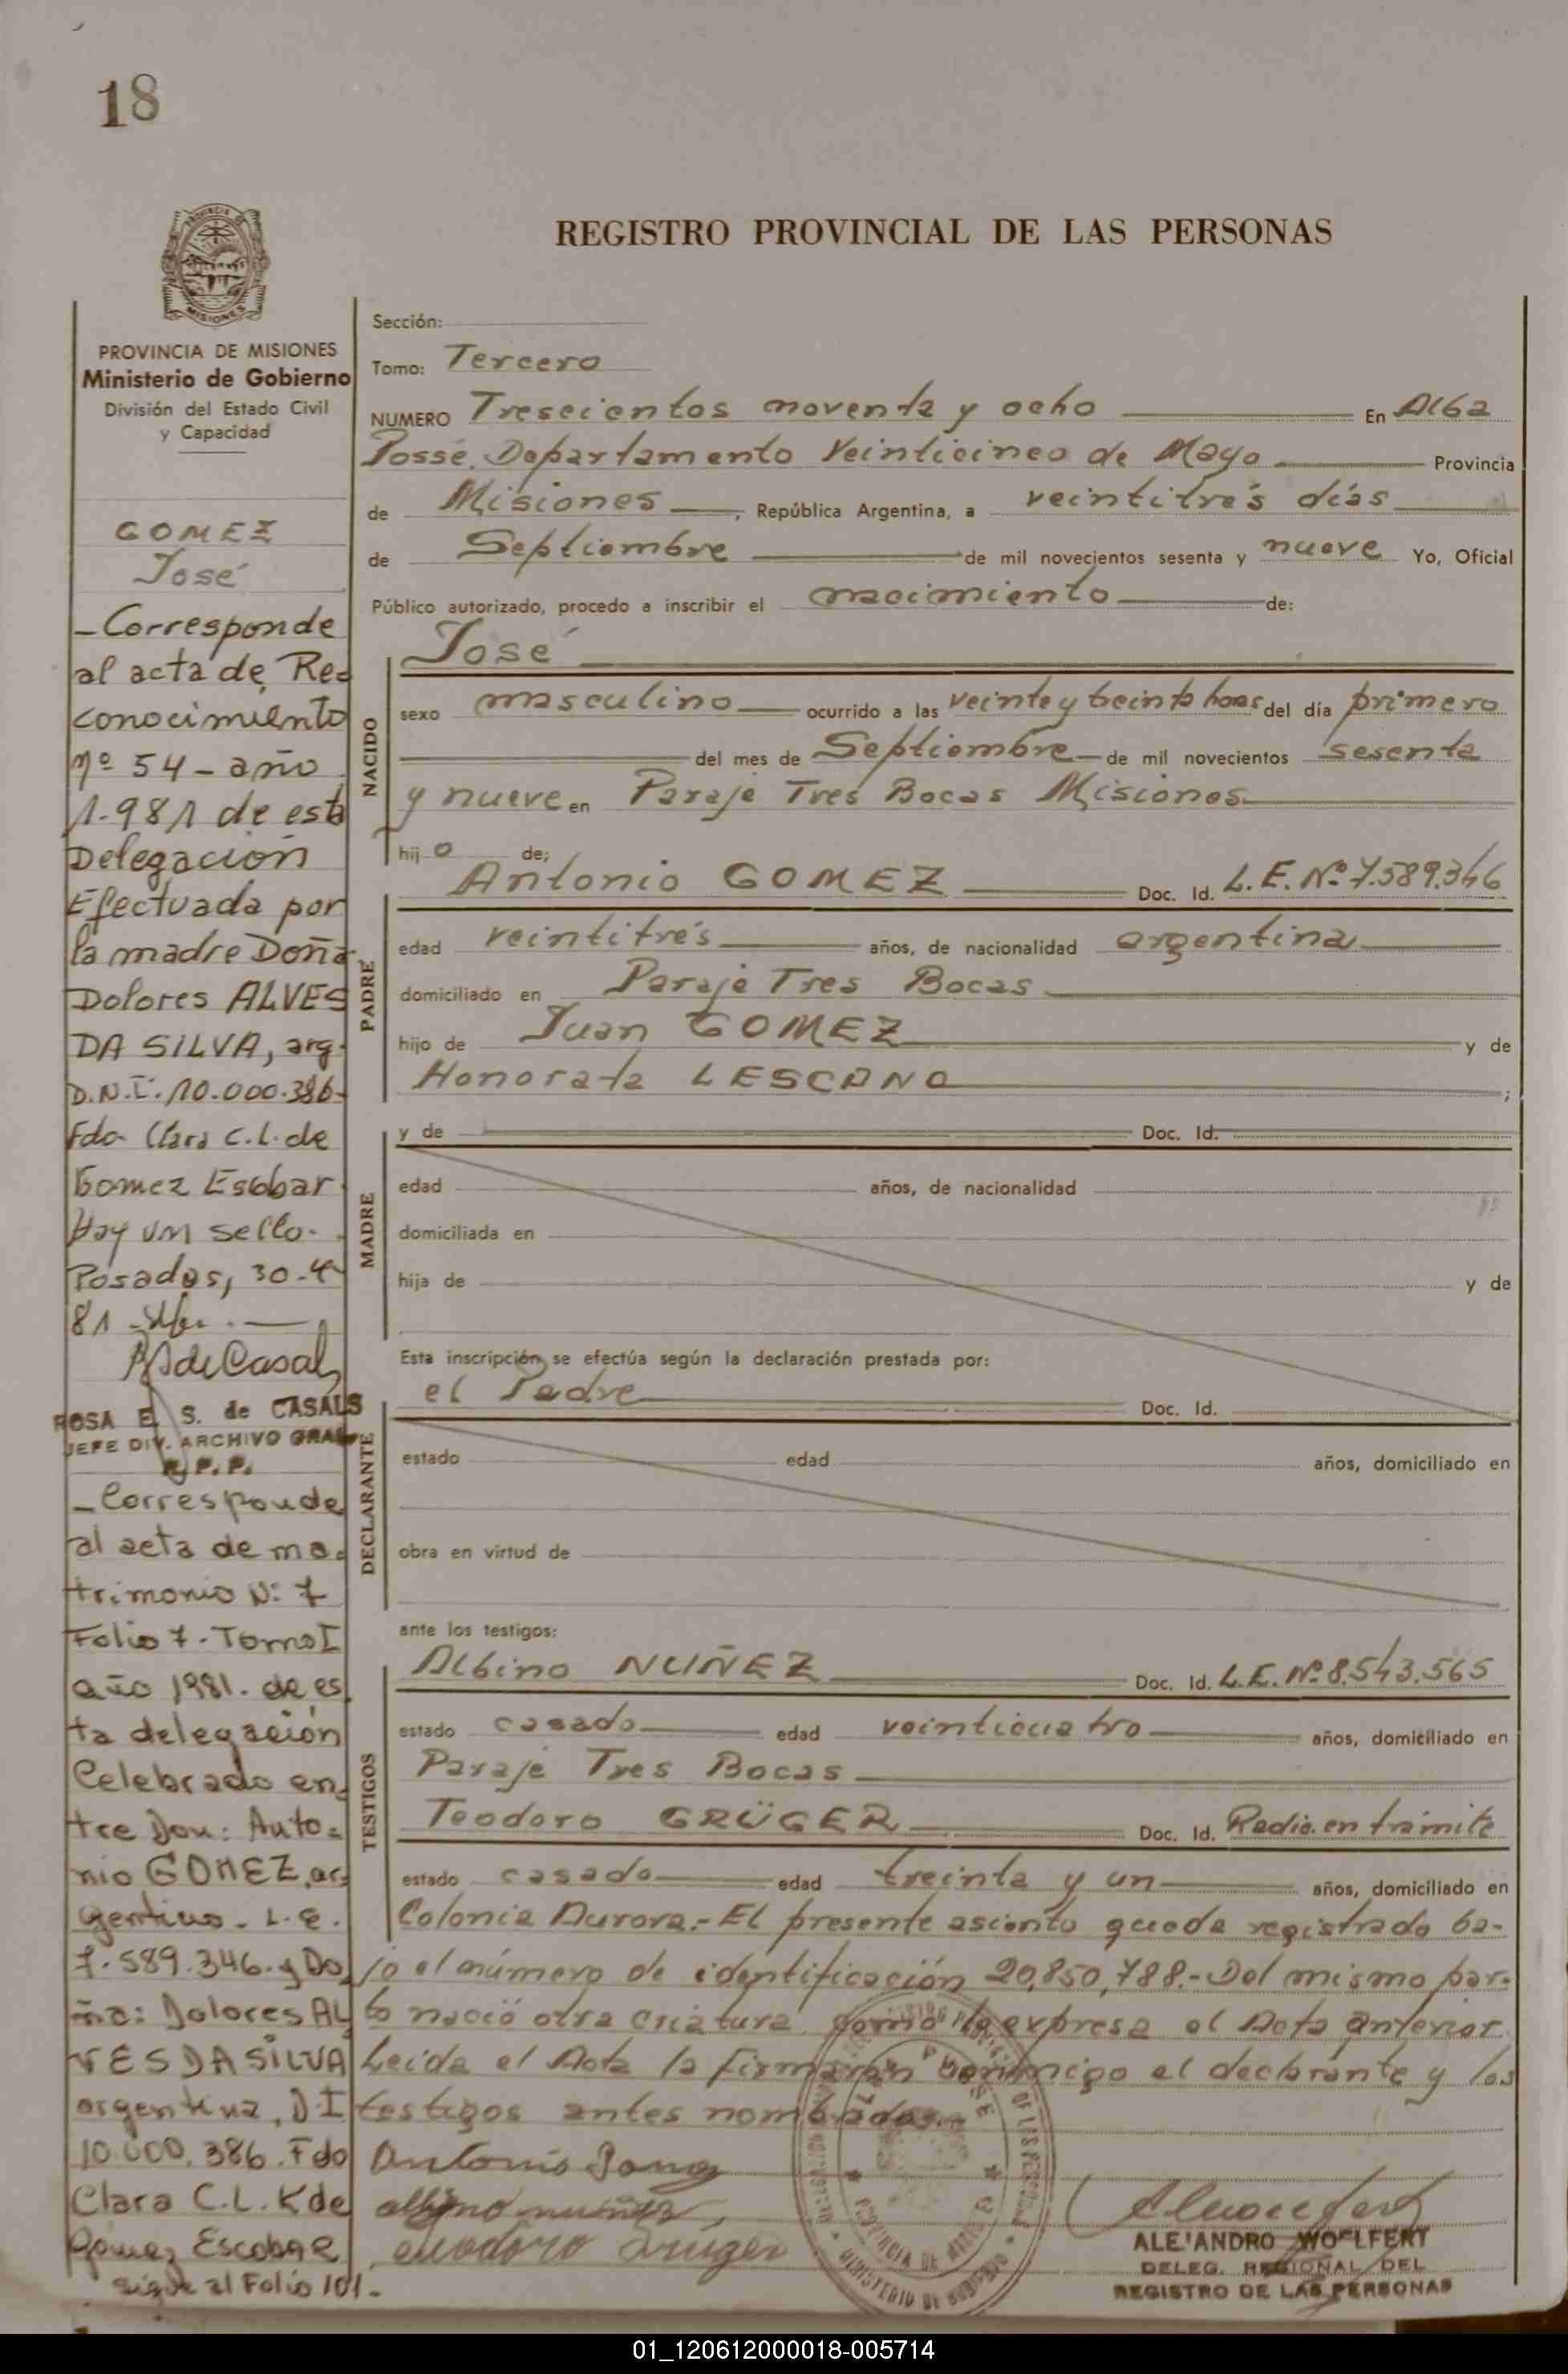 18
PROVINCIA DE MISIONES
Ministerio de Gobierno
División del Estado Civil
y Capacidad
GOMEZ
José
- Corresponde
al acta de Re=
conocimiento
Nº 54 - año
1.981 de esta
Delegación
Efectuada por
la madre Doña
Dolores ALVES
DA SILVA, arg.
D.N.I. 10.000.386-
Fdo. Clara C.L. de
Gomez Escobar
Hay un sello.
Posadas, 30-4-
81
ROSA E. S. de CASALS
JEFE DIV. ARCHIVO GRAL
R.P.P.
- Corresponde
al acta de ma=
trimonio N: 7
Folio 7 - Tomo I
año 1981. de es
ta delegación
Celebrado en=
tre Don: Anto=
nio GOMEZ, ar=
gentino - L.E.
7.589.346. y Do
ña: Dolores AL
VES DA SILVA
argentina, D.I
10.000.386. Fdo
Clara C.L.K de
Gomez Escobar
sigue al Folio 101-
REGISTRO PROVINCIAL DE LAS PERSONAS
Sección:
Tomo: Tercero
NUMERO Trescientos noventa y ocho En Alba
Possé, Departamento Veinticinco de Mayo Provincia
de Misiones, República Argentina, a veintitrés días
de Septiembre de mil novecientos sesenta y nueve Yo, Oficial
Público autorizado, procedo a inscribir el nacimiento de:
NACIDO
José
sexo masculino ocurrido a las veinte y treinta horas del día primero
del mes de Septiembre de mil novecientos sesenta
y nueve en Paraje Tres Bocas Misiones
hijo de;
PADRE
Antonio GOMEZ Doc. Id. L.E. Nº 7.589.346
edad veintitrés años, de nacionalidad argentina
domiciliado en Paraje Tres Bocas
hijo de Juan GOMEZ y de
Honorata LESCANO ;
MADRE
y de Doc. Id.
edad años, de nacionalidad
domiciliada en
hija de y de
Esta inscripción se efectúa según la declaración prestada por:
DECLARANTE
el Padre Doc. Id.
estado edad años, domiciliado en
obra en virtud de
ante los testigos:
TESTIGOS
Albino NUÑEZ Doc. Id. L.E. Nº 8.543.565
estado casado edad veinticuatro años, domiciliado en
Paraje Tres Bocas
Teodoro GRÜGER Doc. Id. Radic. en trámite
estado casado edad treinta y un años, domiciliado en
Colonia Aurora.- El presente asiento queda registrado ba-
jo el número de identificación 20,850,788.- Del mismo par-
to nació otra criatura como lo expresa el Acta anterior.
Leída el Acta la firmaran conmigo el declarante y los
testigos antes nombrados.-
Antonio Gomez
albino nuñez
teodoro Gruger
ALEJANDRO WOLFERT
DELEG. REGIONAL DEL
REGISTRO DE LAS PERSONAS
01_120612000018-005714